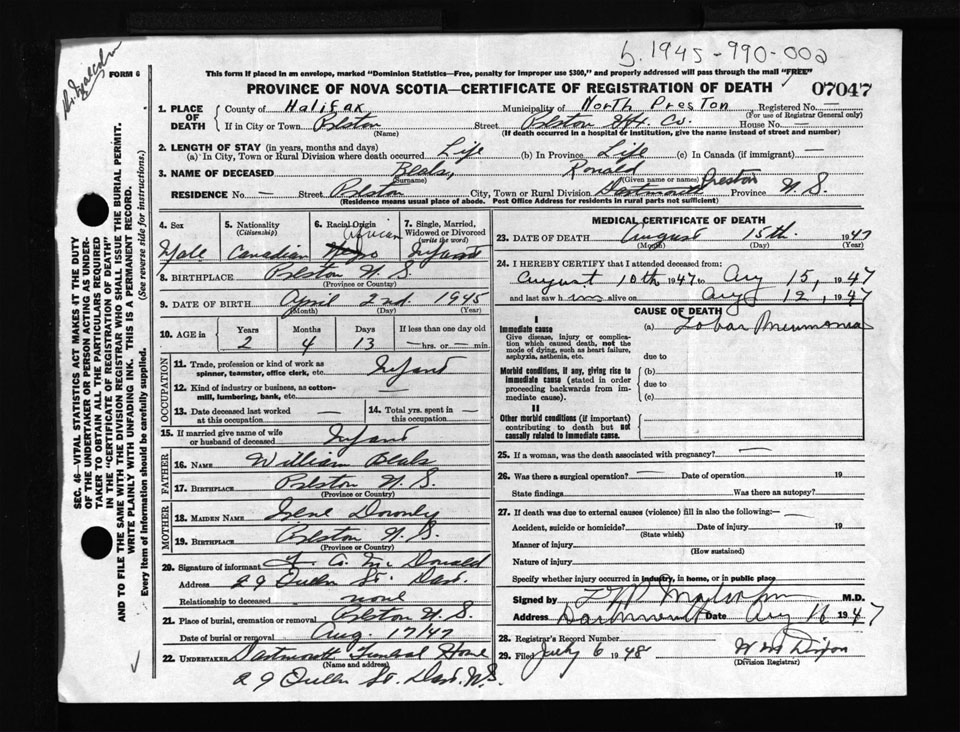 b. 1945-990-002
Dr. Malcolm
FORM 6
This form if placed in an envelope, marked "Dominion Statistics—Free, penalty for improper use $300," and properly addressed will pass through the mail "FREE"
PROVINCE OF NOVA SCOTIA—CERTIFICATE OF REGISTRATION OF DEATH 07047
1. PLACE OF DEATH County of Halifax Municipality of North Preston Registered No. —
(For use of Registrar General only)
If in City or Town Preston Street Preston Hfx. Co. House No. —
(Name) (If death occurred in a hospital or institution, give the name instead of street and number)
2. LENGTH OF STAY (in years, months and days)
(a) In City, Town or Rural Division where death occurred Life (b) In Province Life (c) In Canada (if immigrant) —
3. NAME OF DECEASED Beals, Ronald
(Surname) (Given name or names)
RESIDENCE No. — Street Preston City, Town or Rural Division Dartmouth Preston Province N.S.
(Residence means usual place of abode. Post Office Address for residents in rural parts not sufficient)
4. Sex 5. Nationality (Citizenship) 6. Racial Origin 7. Single, Married, Widowed or Divorced (write the word)
African
Male Canadian Negro Infant
8. BIRTHPLACE Preston N.S.
(Province or Country)
9. DATE OF BIRTH April 2nd 1945
(Month) (Day) (Year)
10. AGE in Years Months Days If less than one day old
2 4 13 — hrs. or — min.
OCCUPATION
11. Trade, profession or kind of work as spinner, teamster, office clerk, etc. Infant
12. Kind of industry or business, as cotton-mill, lumbering, bank, etc. —
13. Date deceased last worked at this occupation — 14. Total yrs. spent in this occupation —
15. If married give name of wife or husband of deceased Infant
FATHER
16. NAME William Beals
17. BIRTHPLACE Preston N.S.
(Province or Country)
MOTHER
18. MAIDEN NAME Irene Downey
19. BIRTHPLACE Preston N.S.
(Province or Country)
20. Signature of informant A. C. McDonald
Address 29 Queen St. Dart.
Relationship to deceased none
21. Place of burial, cremation or removal Preston N.S.
Date of burial or removal Aug. 17/47
22. UNDERTAKER Dartmouth Funeral Home
(Name and address)
29 Queen St. Dart. N.S.
MEDICAL CERTIFICATE OF DEATH
23. DATE OF DEATH August 15th. 1947
(Month) (Day) (Year)
24. I HEREBY CERTIFY that I attended deceased from:
August 10th 1947 to Aug 15, 1947
and last saw him alive on Aug 12, 1947
CAUSE OF DEATH
I
Immediate cause (a) Lobar Pneumonia
Give disease, injury or complication which caused death, not the mode of dying, such as heart failure, asphyxia, asthenia, etc. due to
Morbid conditions, if any, giving rise to immediate cause (stated in order proceeding backwards from immediate cause). (b)
due to
(c)
II
Other morbid conditions (if important) contributing to death but not causally related to immediate cause.
25. If a woman, was the death associated with pregnancy? —
26. Was there a surgical operation? — Date of operation 19
State findings Was there an autopsy?
27. If death was due to external causes (violence) fill in also the following:—
Accident, suicide or homicide? Date of injury 19
(State which)
Manner of injury
(How sustained)
Nature of injury
Specify whether injury occurred in industry, in home, or in public place
Signed by Malcolm M.D.
Address Dartmouth Date Aug 16 1947
28. Registrar's Record Number
29. Filed July 6 1948 Dixon
(Division Registrar)
SEC. 46—VITAL STATISTICS ACT MAKES IT THE DUTY
OF THE UNDERTAKER OR PERSON ACTING AS UNDER-
TAKER TO OBTAIN ALL THE PARTICULARS REQUIRED
IN THE "CERTIFICATE OF REGISTRATION OF DEATH"
AND TO FILE THE SAME WITH THE DIVISION REGISTRAR WHO SHALL ISSUE THE BURIAL PERMIT.
WRITE PLAINLY WITH UNFADING INK. THIS IS A PERMANENT RECORD.
Every item of information should be carefully supplied. (See reverse side for instructions.)